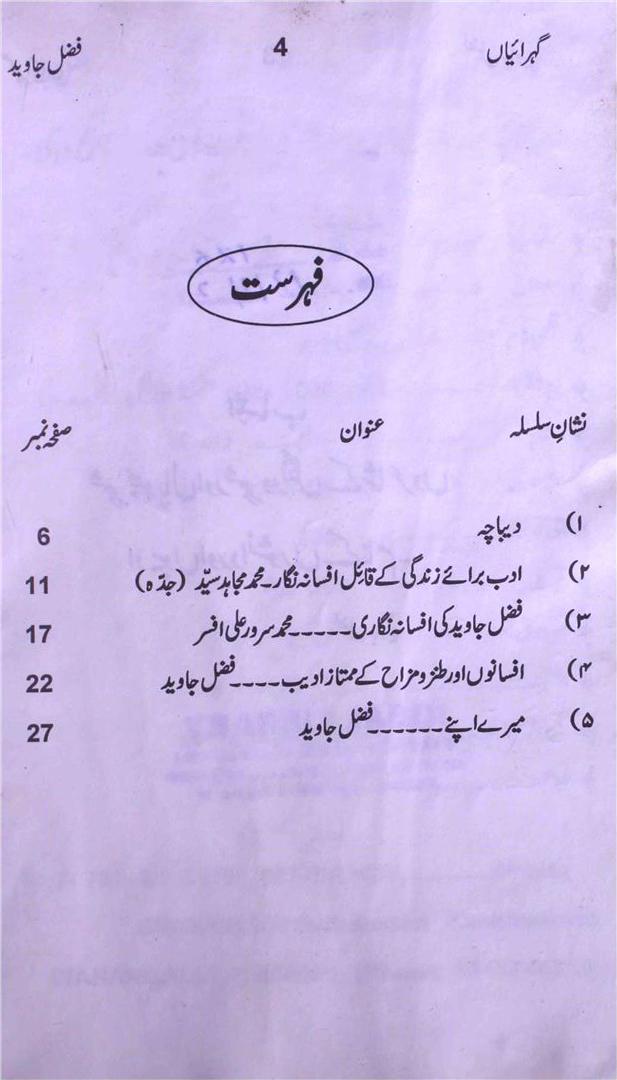 گہرائیاں 4 فضل جاوید
فہرست
نشانِ سلسلہ عنوان صفحہ نمبر
۱) دیباچہ 6
۲) ادب برائے زندگی کے قائل افسانہ نگار۔محمد مجاہد سیّد (جدّہ) 11
۳) فضل جاوید کی افسانہ نگاری۔۔۔۔۔محمد سرور علی افسر 17
۴) افسانوں اور طنز و مزاح کے ممتاز ادیب۔۔۔۔فضل جاوید 22
۵) میرے اپنے۔۔۔۔۔۔فضل جاوید 27